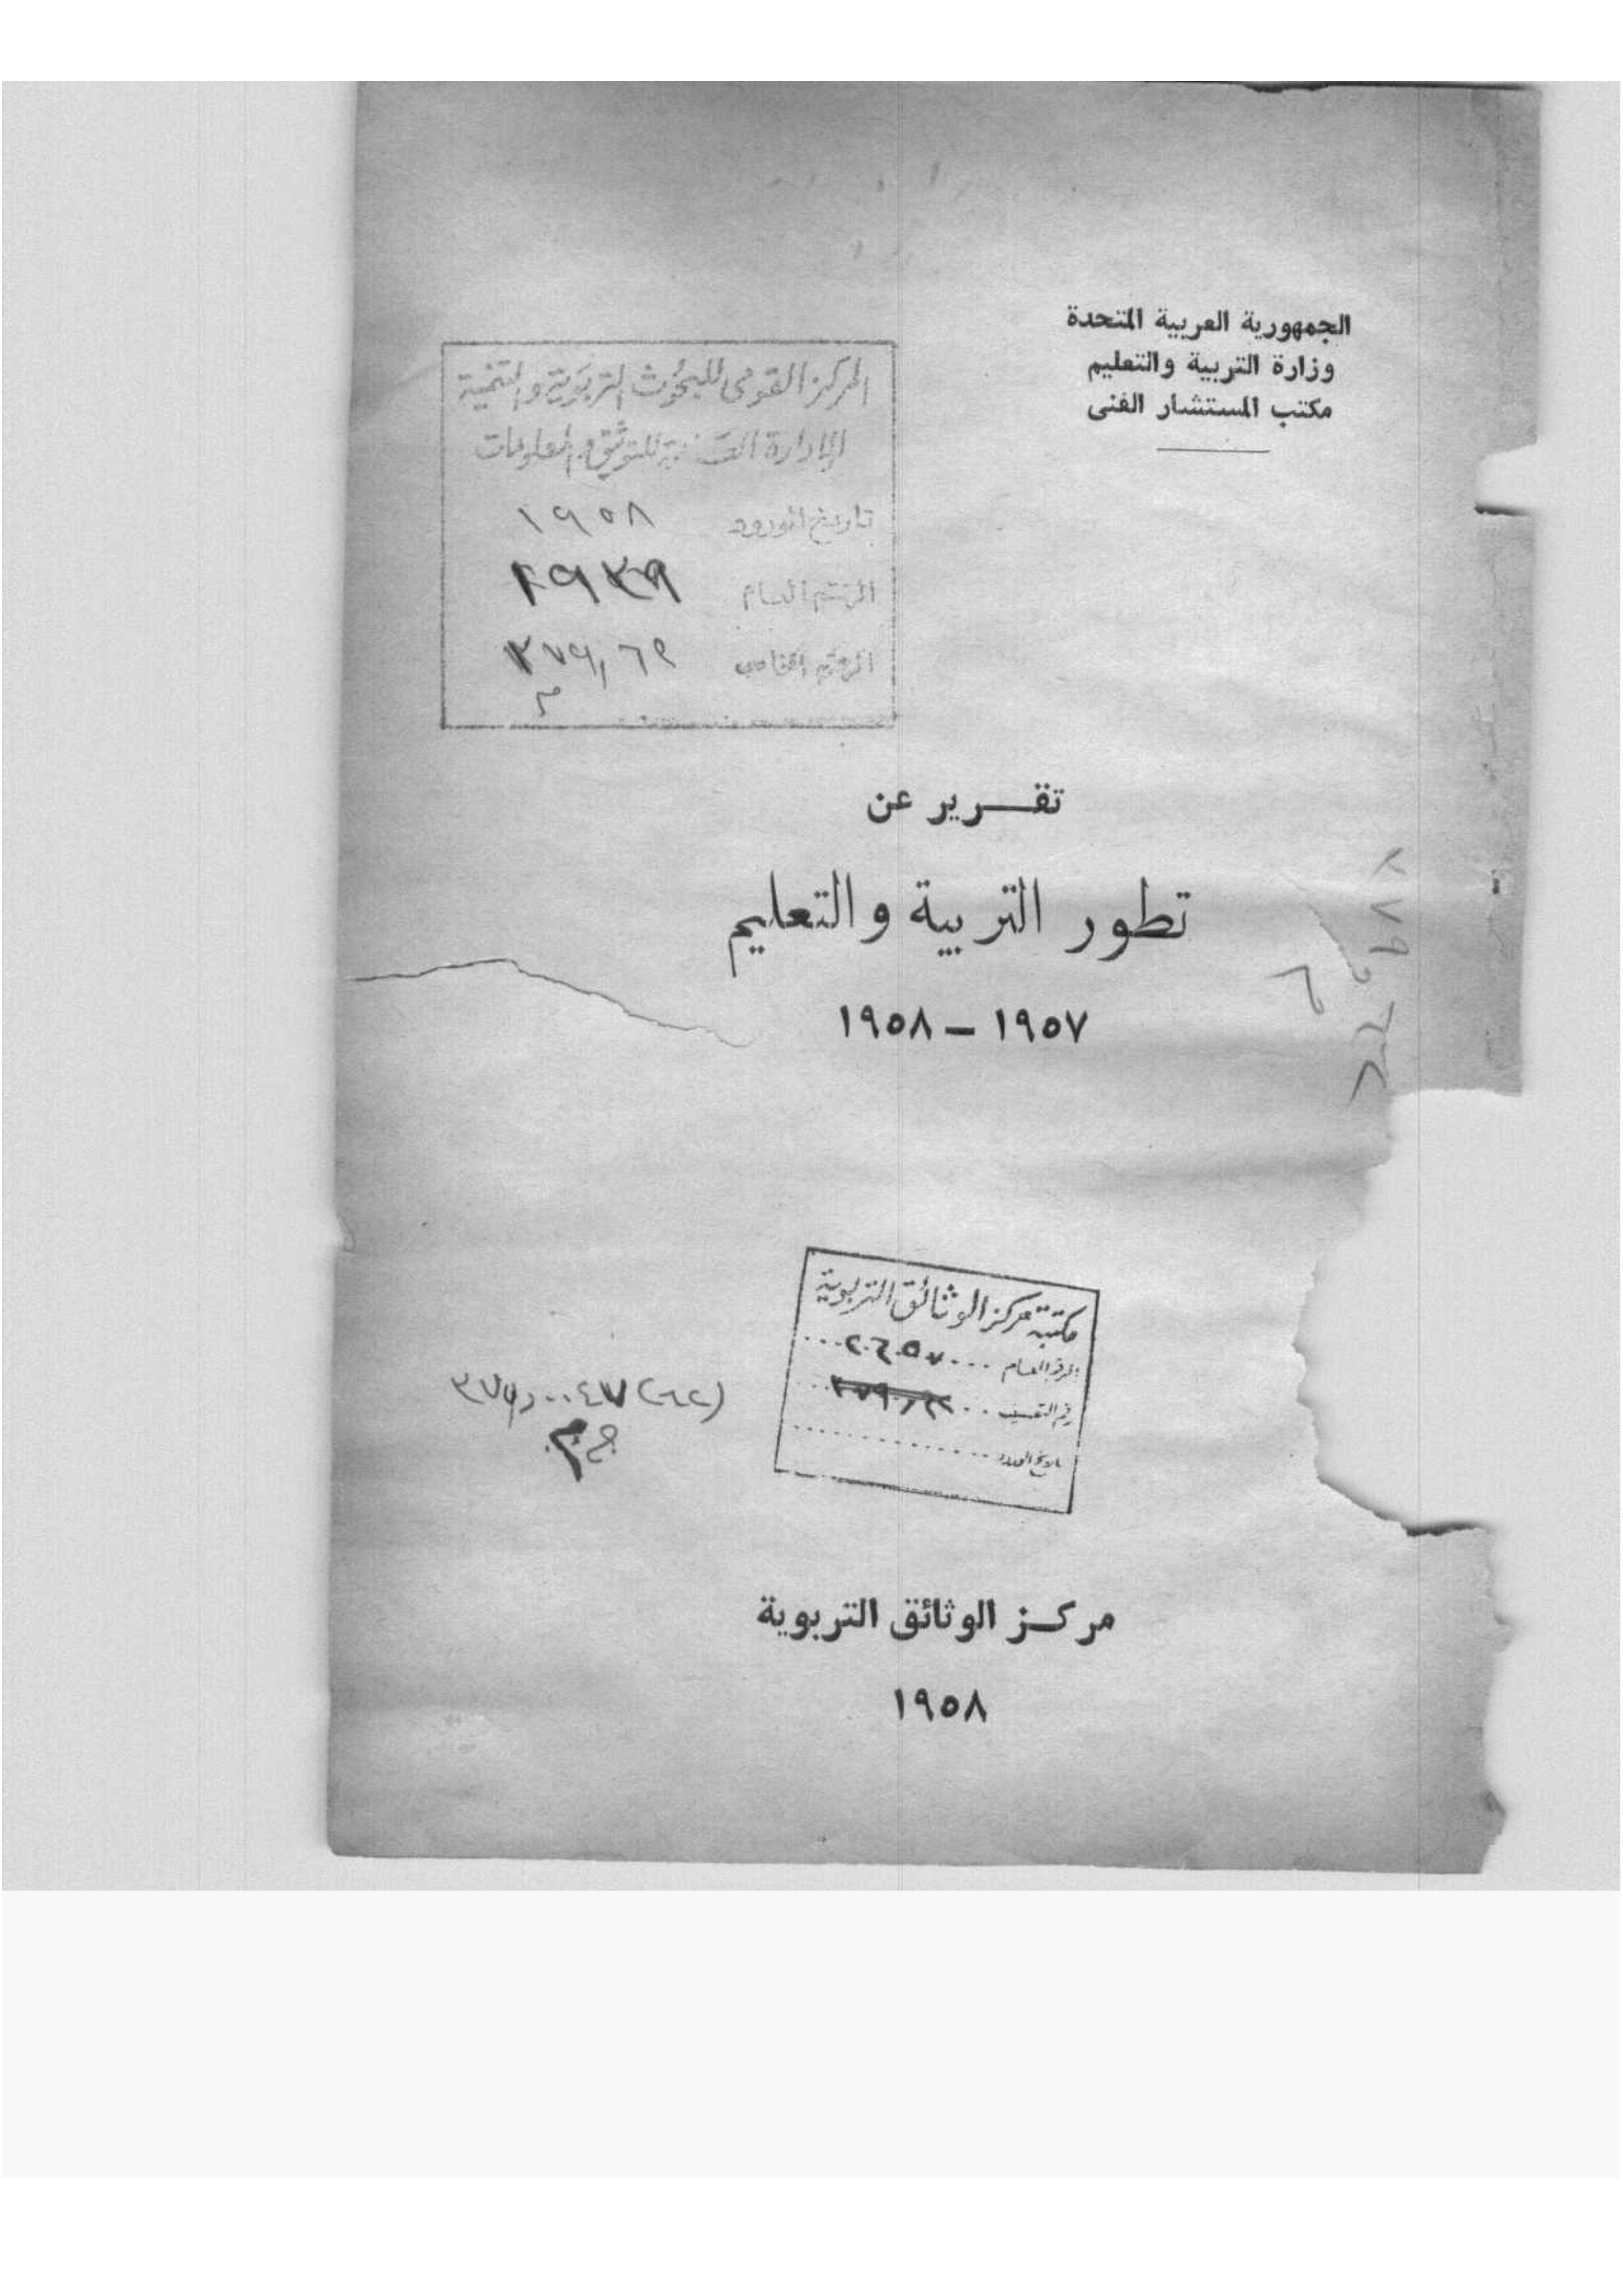 الجمهورية العربية المتحدة
وزارة التربية والتعليم
مكتب المستشار الفنى
المركز القومى للبحوث التربوية والتنمية
الإدارة العامة للتوثيق والمعلومات
تاريخ الورود ١٩٥٨
الرقم العام
الرقم الخاص
تقـــرير عن
تطور التربية والتعليم
١٩٥٧ – ١٩٥٨
مكتبة مركز الوثائق التربوية
الرقم العام
رقم التصنيف
مركـز الوثائق التربوية
١٩٥٨